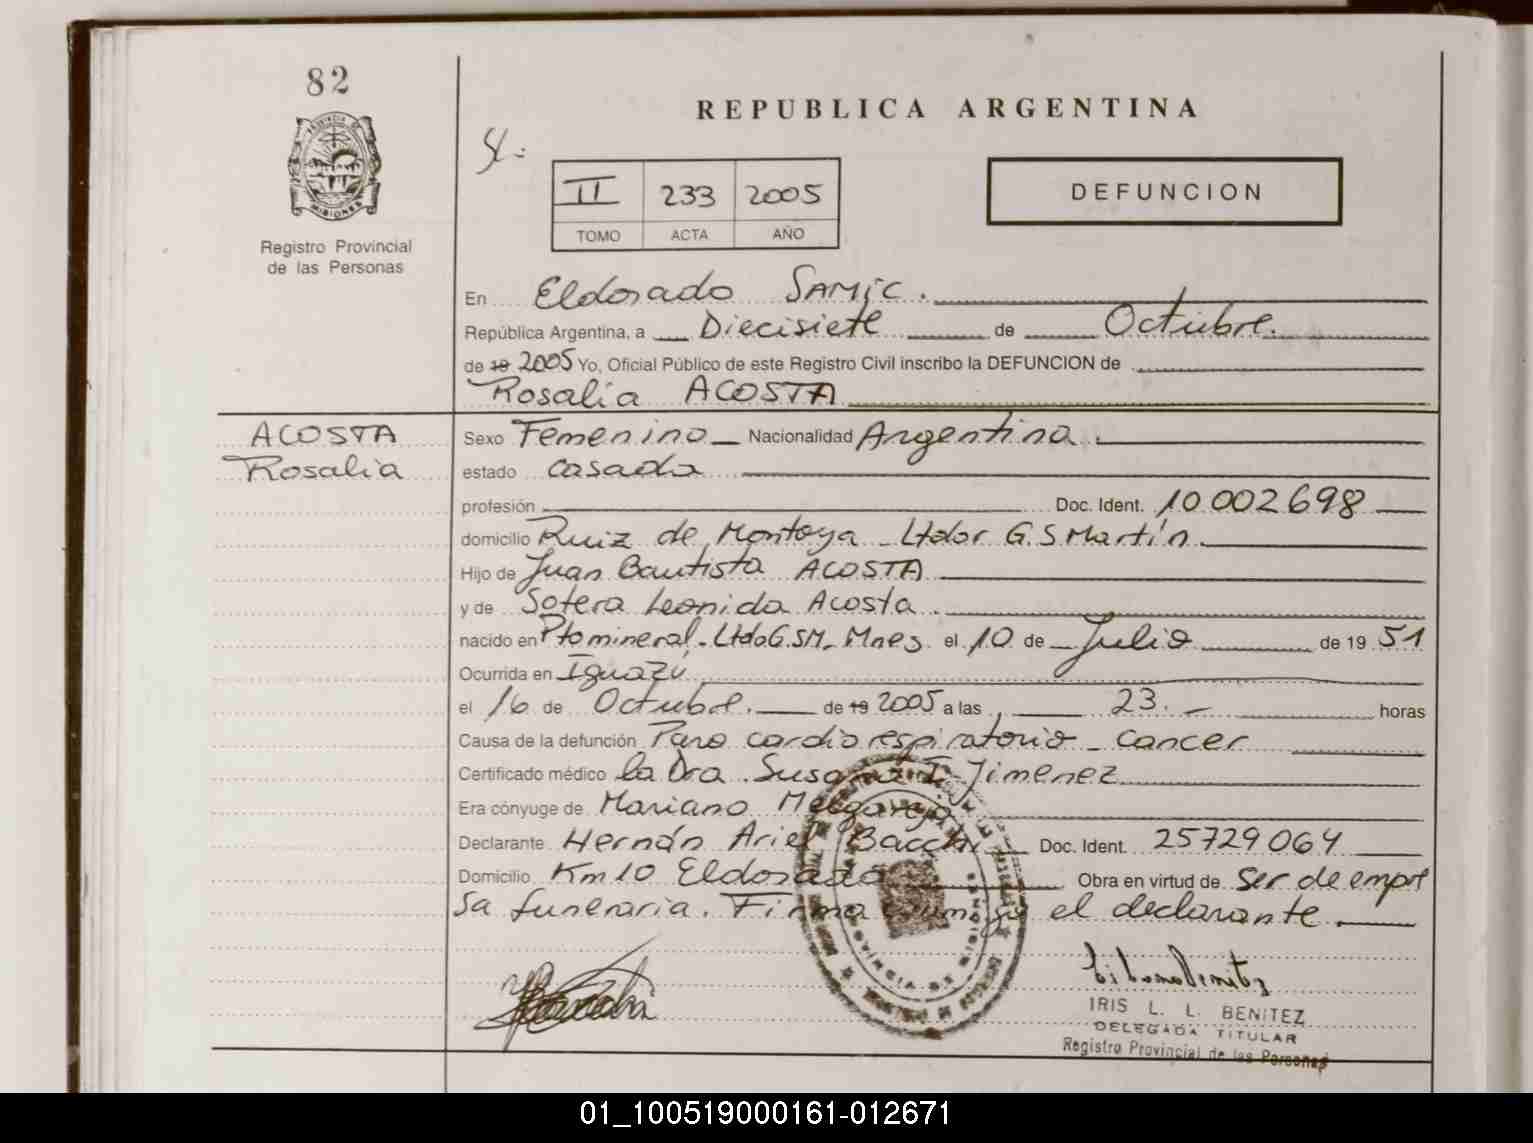 82
REPUBLICA ARGENTINA
PROVINCIA DE
MISIONES
Registro Provincial
de las Personas
II 233 2005
TOMO ACTA AÑO
DEFUNCION
En Eldorado SAMIC.
República Argentina, a Diecisiete de Octubre.
de 19 2005 Yo, Oficial Público de este Registro Civil inscribo la DEFUNCION de
Rosalia ACOSTA
ACOSTA
Rosalia
Sexo Femenino Nacionalidad Argentina.
estado casada
profesión Doc. Ident. 10.002698
domicilio Ruiz de Montoya - Ltdor G. S Martín
Hijo de Juan Bautista ACOSTA
y de Sotera Leonida Acosta.
nacido en Pto mineral - Ltdo G. SM. Mnes. el 10 de Julio de 19 51
Ocurrida en Iguazú
el 16 de Octubre. de 19 2005 a las 23. horas
Causa de la defunción Paro cardio respiratorio - cancer
Certificado médico la Dra. Susana I. Jimenez
Era cónyuge de Mariano Melgarejo
Declarante Hernán Ariel Bacchi Doc. Ident. 25729064
Domicilio Km 10 Eldorado Obra en virtud de ser de empre
sa funeraria. Firma conmigo el declarante.
IRIS L. L. BENITEZ
DELEGADA TITULAR
Registro Provincial de las Personas
01_100519000161-012671